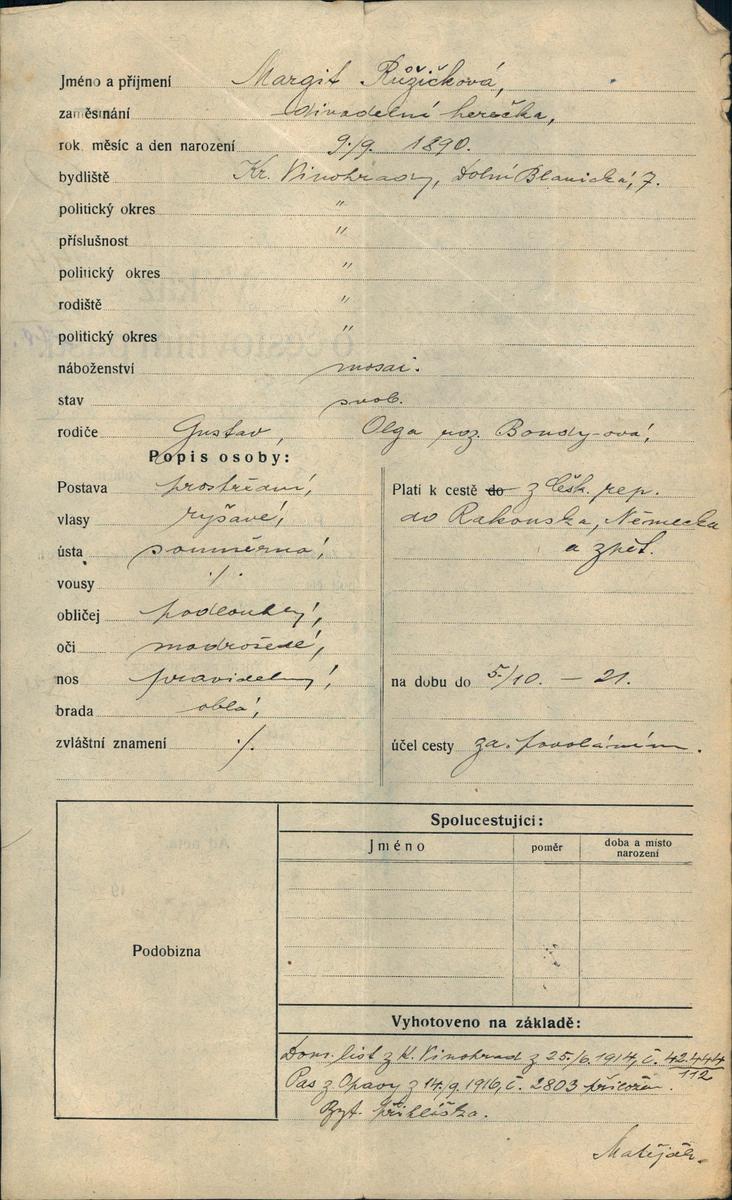 Jméno a příjmení Margit Růžičková,
zaměstnání divadelní herečka,
rok, měsíc a den narození 9./9. 1890.
bydliště Kr. Vinohrady, Dolní Blanická, 7.
politický okres "
příslušnost "
politický okres "
rodiště "
politický okres "
náboženství mosai.
stav svob.
rodiče Gustav, Olga roz. Bondy-ová,
Popis osoby:
Postava prostřední,
vlasy ryšavé,
ústa souměrná,
vousy ./.
obličej podlouhlý,
oči modrošedé,
nos pravidelný,
brada oblá,
zvláštní znamení ./.
Platí k cestě do z Česk. rep.
do Rakouska, Německa
a zpět.
na dobu do 5./10. – 21.
účel cesty za povoláním.
Podobizna
Spolucestující:
Jméno poměr doba a místo
narození
Vyhotoveno na základě:
Dom. list z K. Vinohrad z 25./6. 1914, č. 42.444/112
Pas z Opavy z 14./9. 1916, č. 2803 přiložen.
Byt. přihláška.
Matěják.